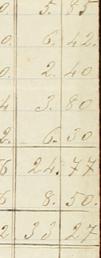 0. 5. 85
0. 6. 42.
0. 2. 40
4 3. 80
2. 6. 30
6 24. 77
6 8. 50.
2 33 27